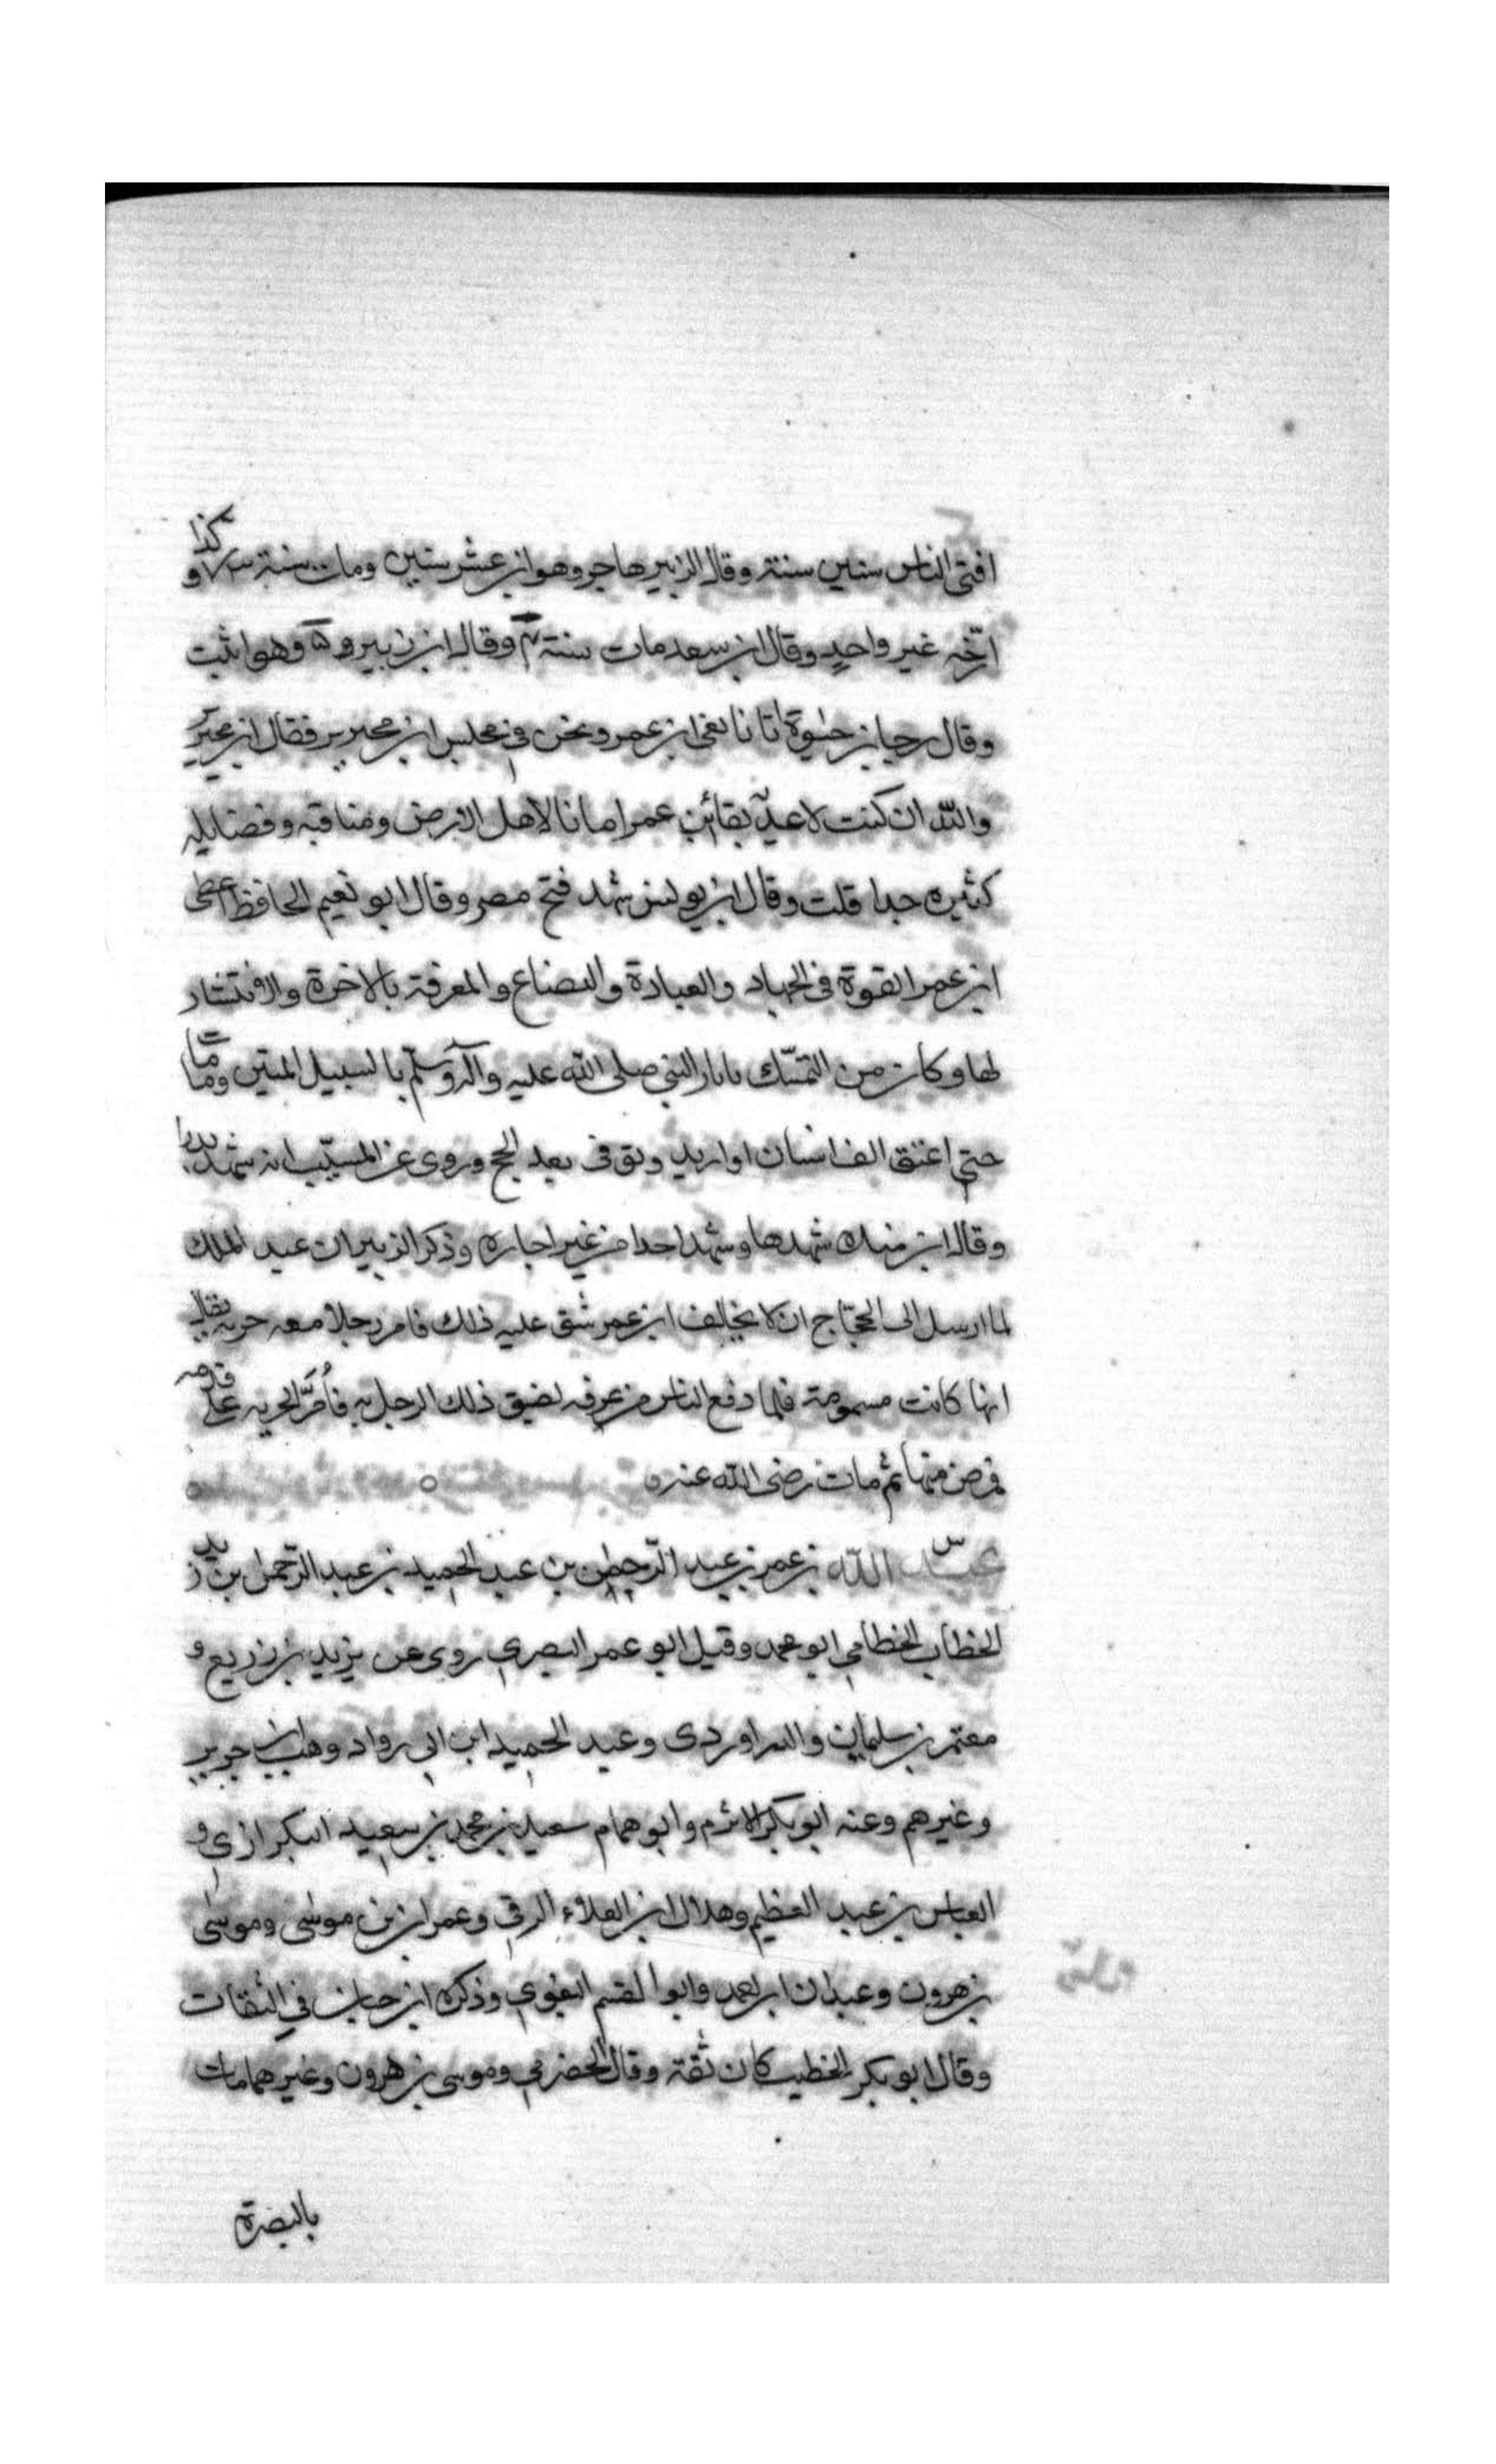 افتى الناس ستين سنة وقال الزبير هاجر وهو ابن عشر سنين ومات سنة كذا و
ارّخه غير واحدٍ وقال ابن سعد مات سنة وقال ابن زبير وهو اثبت
وقال رجا بن حيوة اتانا نعى ابن عمر ونحن في مجلس ابن محيريز فقال ابن محيريز
والله ان كنت لاعدّ بقا ابن عمر امانا لاهل الارض ومناقبه وفضايله
كثيره جدا قلت وقال ابن يونس شهد فتح مصر وقال ابو نعيم الحافظ اعطى
ابن عمر القوة في الجهاد والعبادة والبضاع والمعرفة بالاخرة والافتشار
لها وكان من التمسّك باثار النبي صلى الله عليه وآله وسلّم بالسبيل المتين وما مات
حتى اعتق الف انسان او ازيد وتوفى بعد الحج وروى عن المسيّب انه شهد بدرا
وقال ابن منده شهدها وشهد احدا من غير اجازه وذكر الزبير ان عبد الملك
لما ارسل الى الحجّاج ان لا يخالف ابن عمر شق عليه ذلك فامر رجلا معه حربه يقال
انها كانت مسمومة فلما دفع الناس من عرفه لصق ذلك الرجل به فأمَرّ الحربه على قدمه
فمرض منها ثم مات رضى الله عنه
عبد الله بن عمر بن عبد الرّحمن بن عبد الحميد بن عبد الرّحمن بن زيد بن
الخطاب الخطابي ابو محمد وقيل ابو عمر البصري روى عن يزيد بن زريع و
معتمر بن سليمان والدراوردى وعبد الحميد ابن ابى رواد وهب بن جرير
وغيرهم وعنه ابو بكر الاثرم وابو همام سعيد بن محمد بن سعيد البكراوى و
العباس بن عبد العظيم وهلال ابن العلاء الرقي وعمران بن موسى وموسى
بن هرون وعبدان ابن احمد وابو القسم البغوي وذكره ابن حبان في الثقات
وقال ابو بكر الخطيب كان ثقة وقال الحضرمي وموسى بن هرون وغيرهما مات
بالبصرة